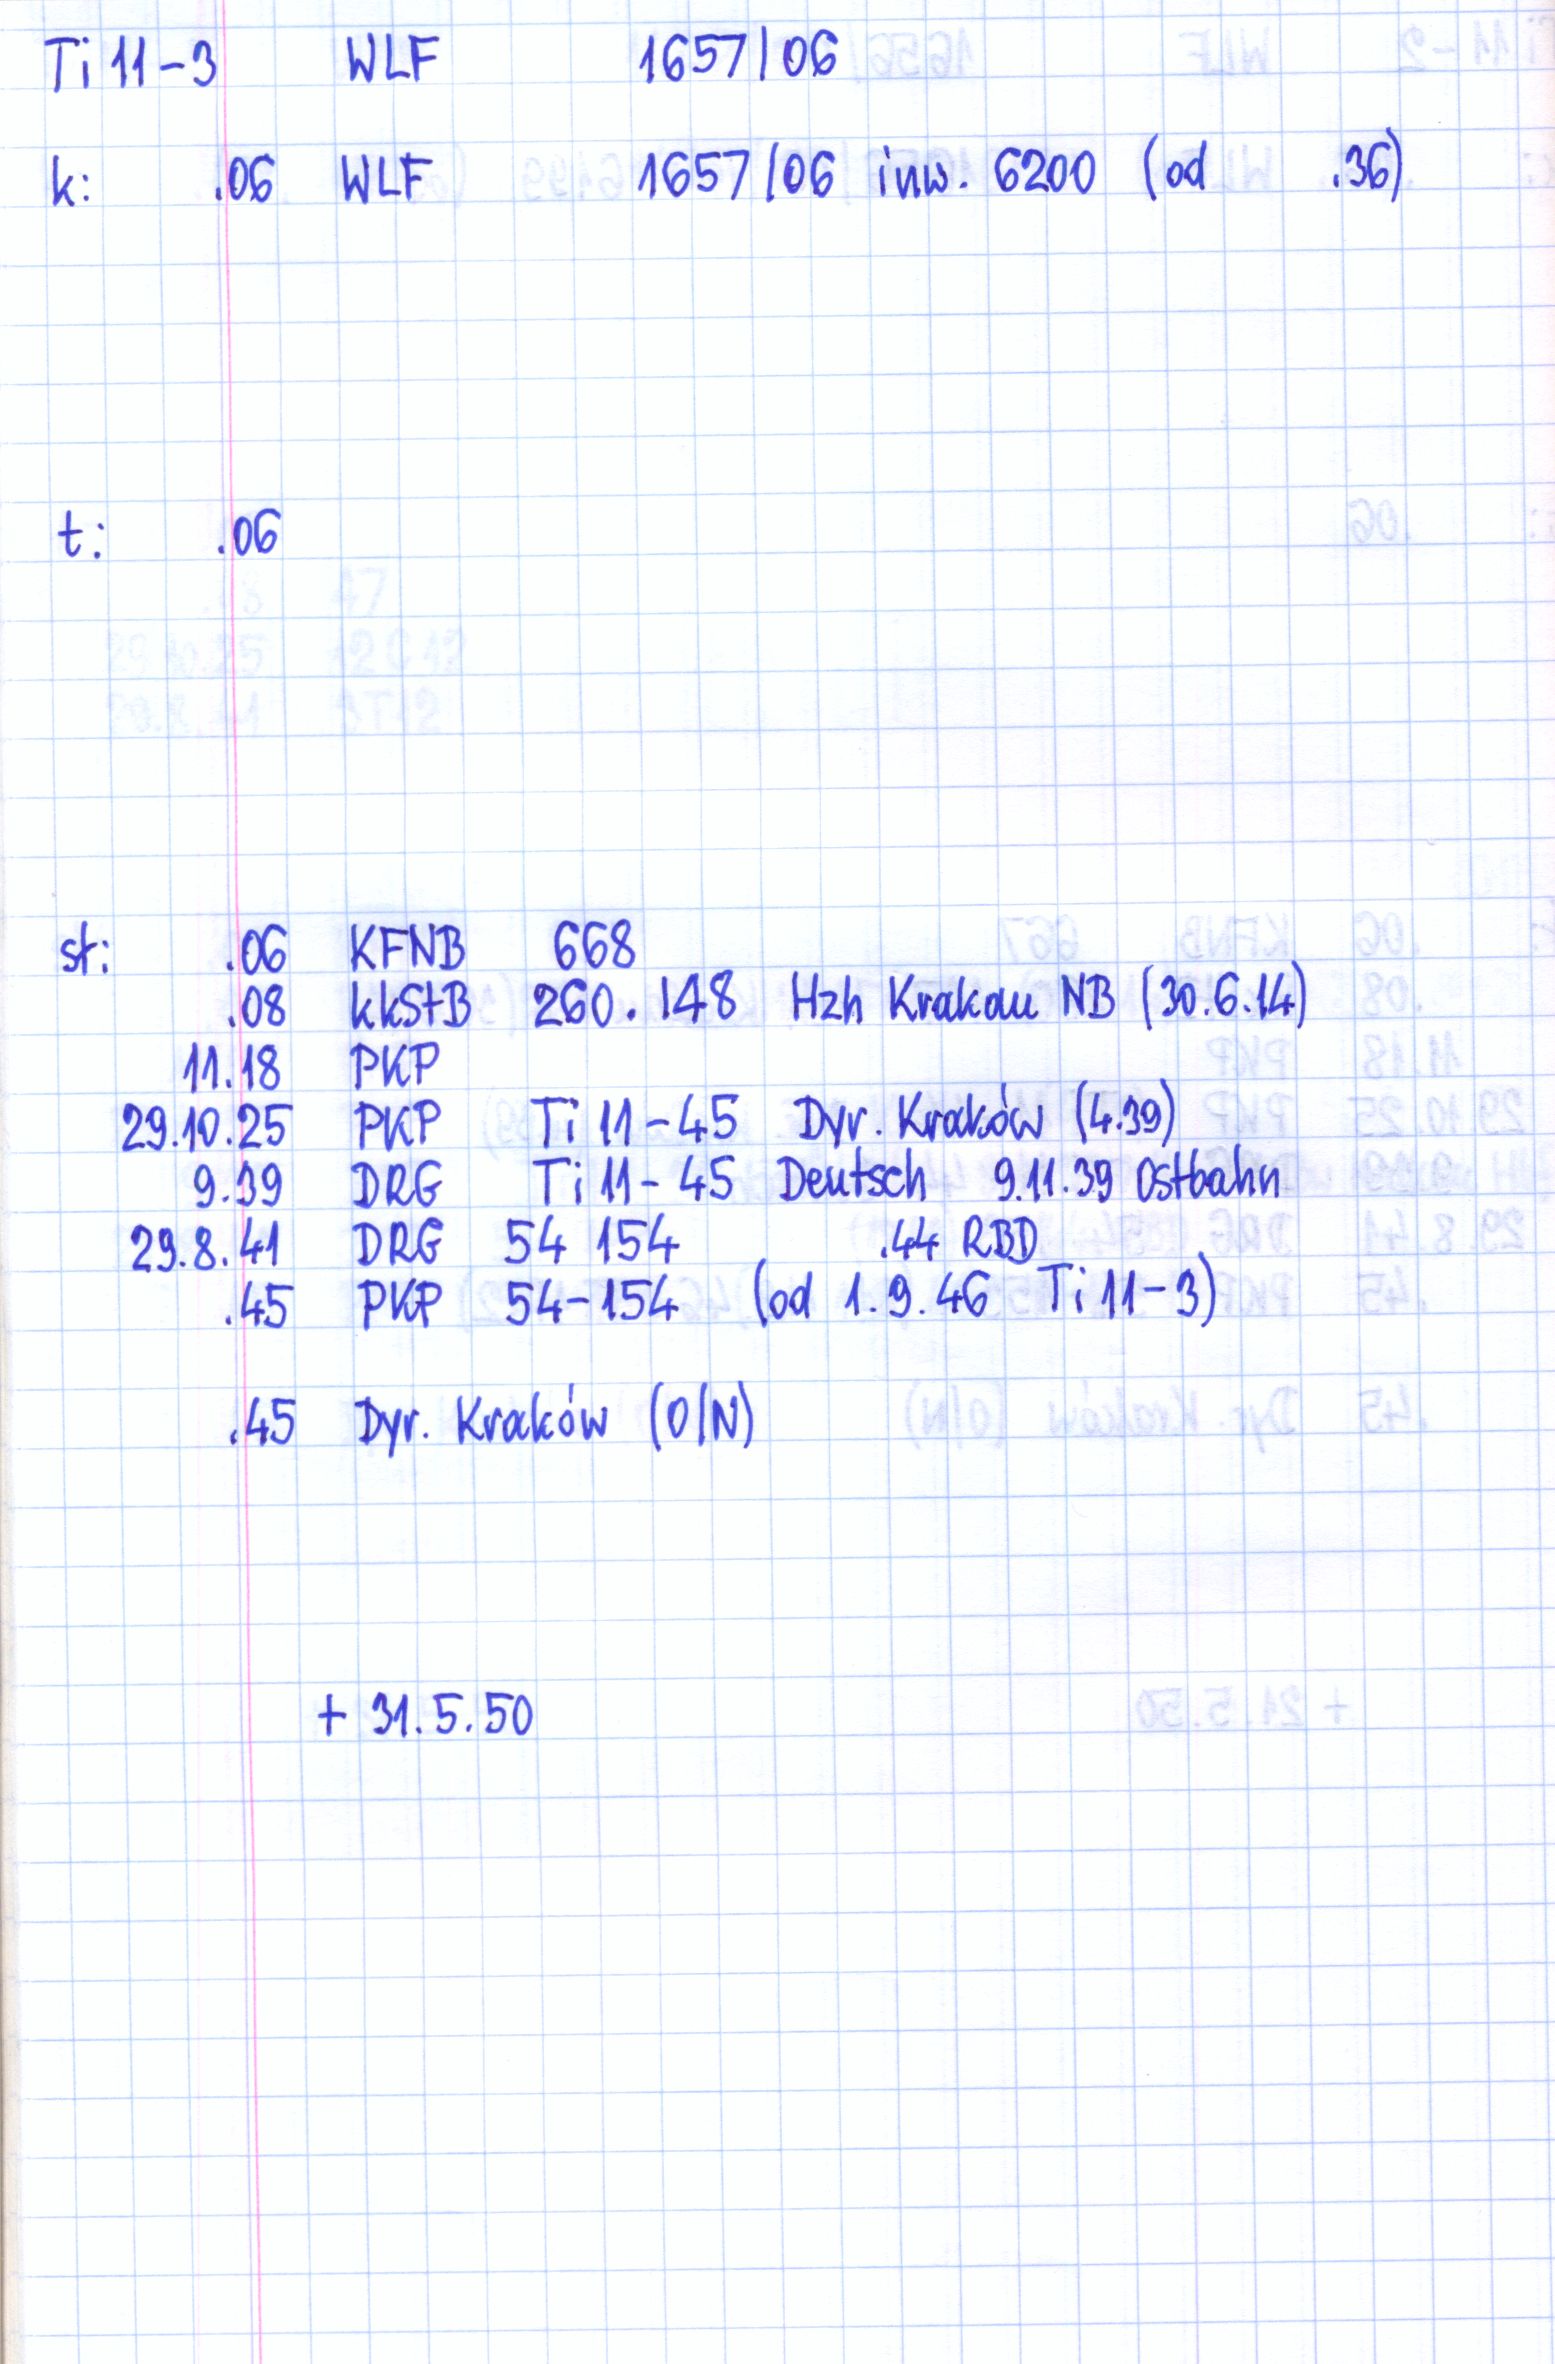 Ti 11-3 WLF 1657/06
k: .06 WLF 1657/06 inw. 6200 (od .36)
t: .06
st: .06 KFNB 668
.08 kkStB 260.148 Hzh Krakau NB (30.6.14)
11.18 PKP
29.10.25 PKP Ti 11-45 Dyr. Kraków (4.39)
9.39 DRG Ti 11-45 Deutsch 9.11.39 Ostbahn
29.8.41 DRG 54 154 .44 RBD
.45 PKP 54-154 (od 1.9.46 Ti 11-3)
.45 Dyr. Kraków (O/N)
+ 31.5.50